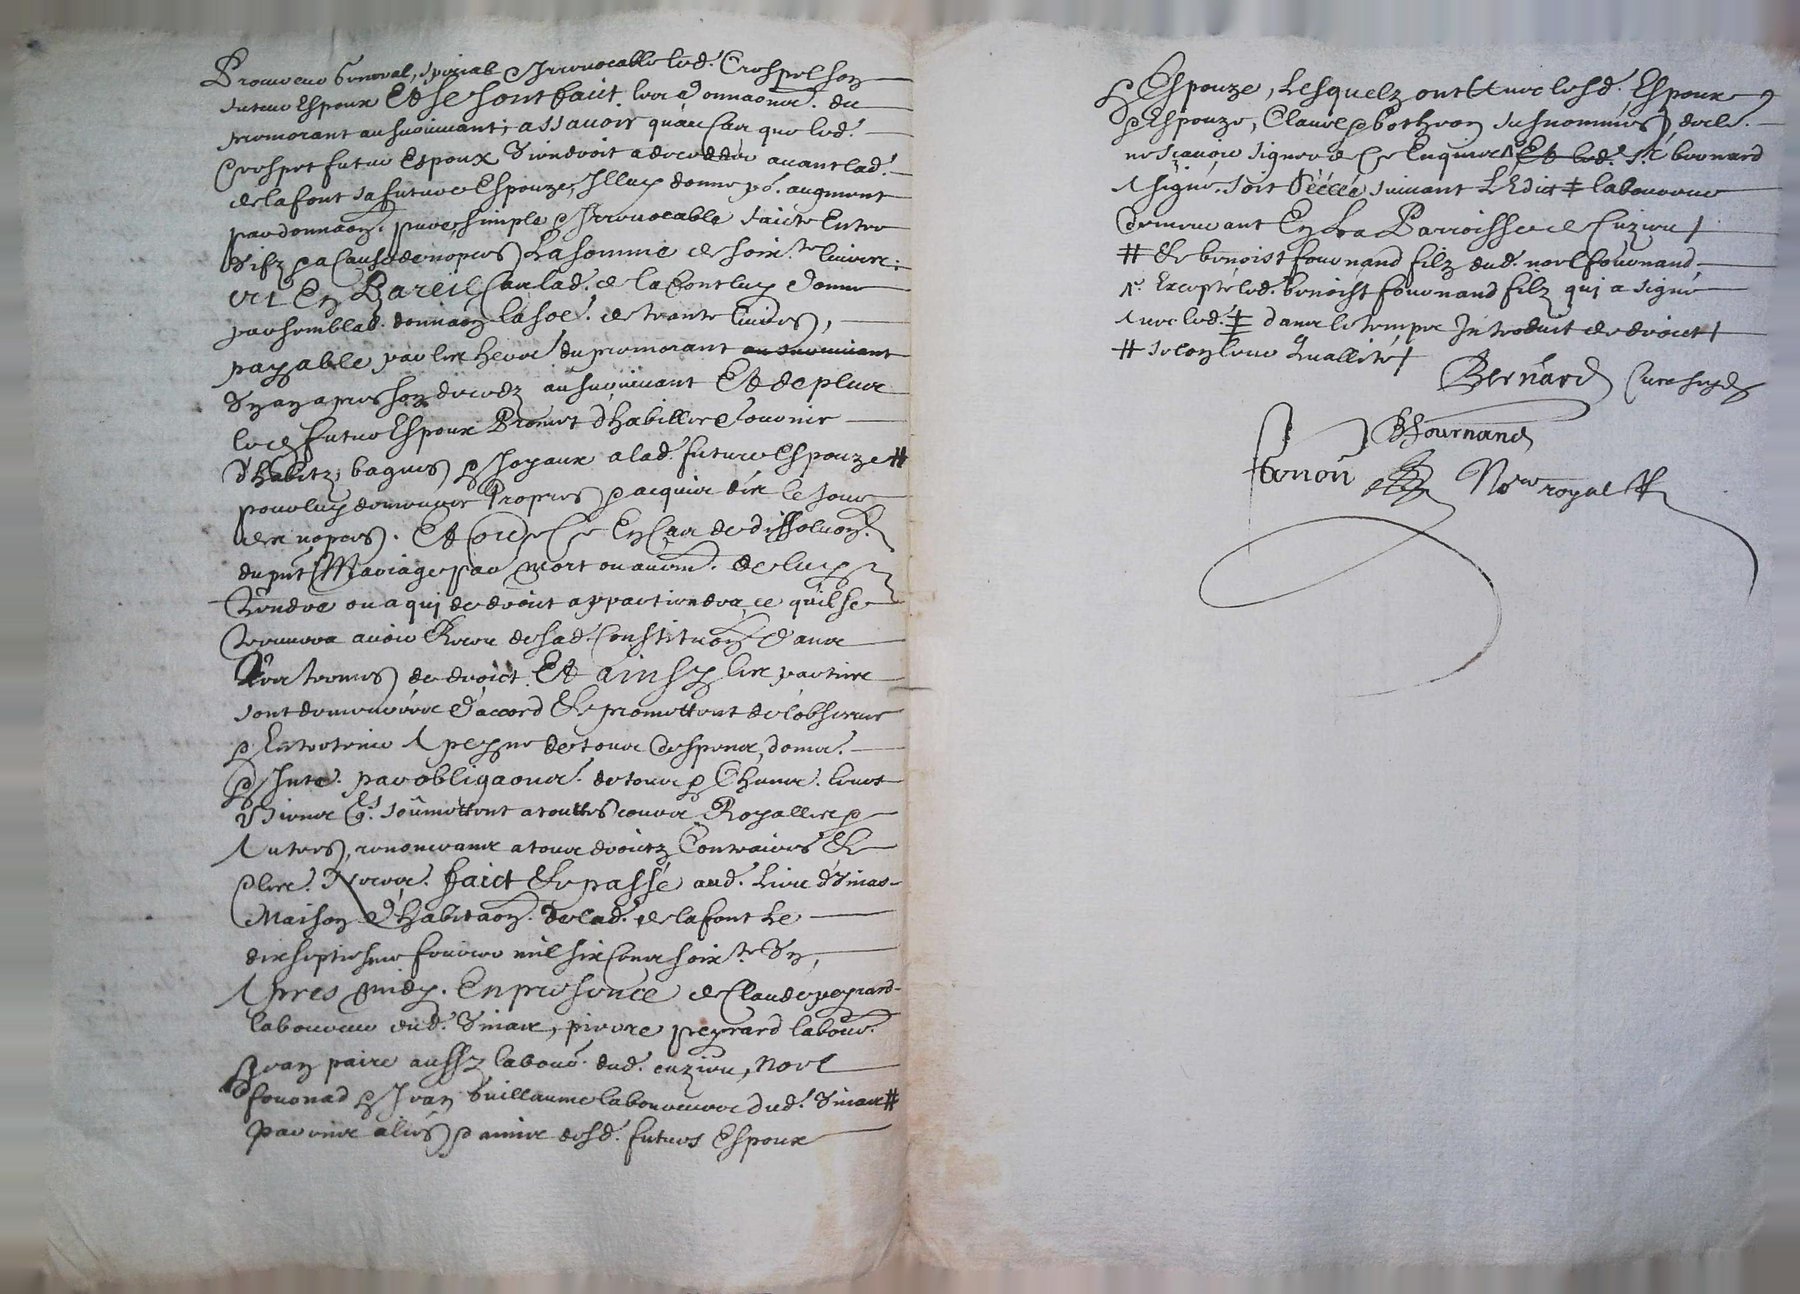 Procureur General, special & Irrevocable led. Crespet son
futeur Espoux Et se sont faict les donnaons. du
premorant au survivant; assavoir qu'au cas que led.
Crespet futur Espoux viendroit a decedder avant lad.
de lafont sa future Espouze, Il luy donne p.r augment
par donnaon. pure, simple & Irrevocable faicte Entre
vifz & a Cause de nopces, La somme de soix.te livres;
Et En Pareil Cas lad. de la font luy donne
par semblab. donnaon la so.e de trante livres,
payable par les heoir. du premorant au survivant
un an apres son decedz au survivant Et de plus
led. futur Espoux Promet d'habiller & fournir
d'habitz, bagues & Joyaux a lad. future Espouze #
pour luy demeurer Propres & acquis dez le Jour
des nopces. Et En Cas de dissoluon.
du pnt Mariage par mort ou autrem. de luy
Rendre ou a qui de droict appartiendra ce quil se
trouvera avoir Receu de sad. Constitution dans
les termes de droict. Et ainsy les parties
sont demeurées d'accord & promettent de l'observer
& Entretenir A peyne de tous despens, domas.
& Inte. par obligaons. de tous & Chuns. leurs
biens q. soumettent a touttes cours Royalles &
Autres, renonceans a tous droictz Contraires &
Clau. Neces. faict & passé aud. lieu d'Unias
Maison d'habitaon. de lad. de lafont Le
dixseptiesme fevrier mil six Cens soix.te Un,
Apres midy. En presence de Claude peyrard
laboureur dud. Unias, pierre peyrard labour.
Jean paire aussy labour. dud. cuzieu, Noel
fournad & Jean Guillaume laboureurs dud. Unias #
parens alies & amis desd. futurs Espoux
& Espouze, Lesquelz ont & avec lesd. Espoux
& Espouze, Claude & susnommes, declé.
ne sçavoir signer de Ce Enquis ^ Et led. Sr. bernard
A signé. Soit Scellé suivant L'Edict ‡ laboureur
demeurant En La Parroisse de Cuzieu /
# & benoist fournand filz dud. noel fournand,
^. Excepté led. benoist fournand filz qui a signé
Avec led. ‡ dans le temps Introduit de droict /
# selon leur quallité /
Bernard Cure susd.
BFournand
Not.re royal